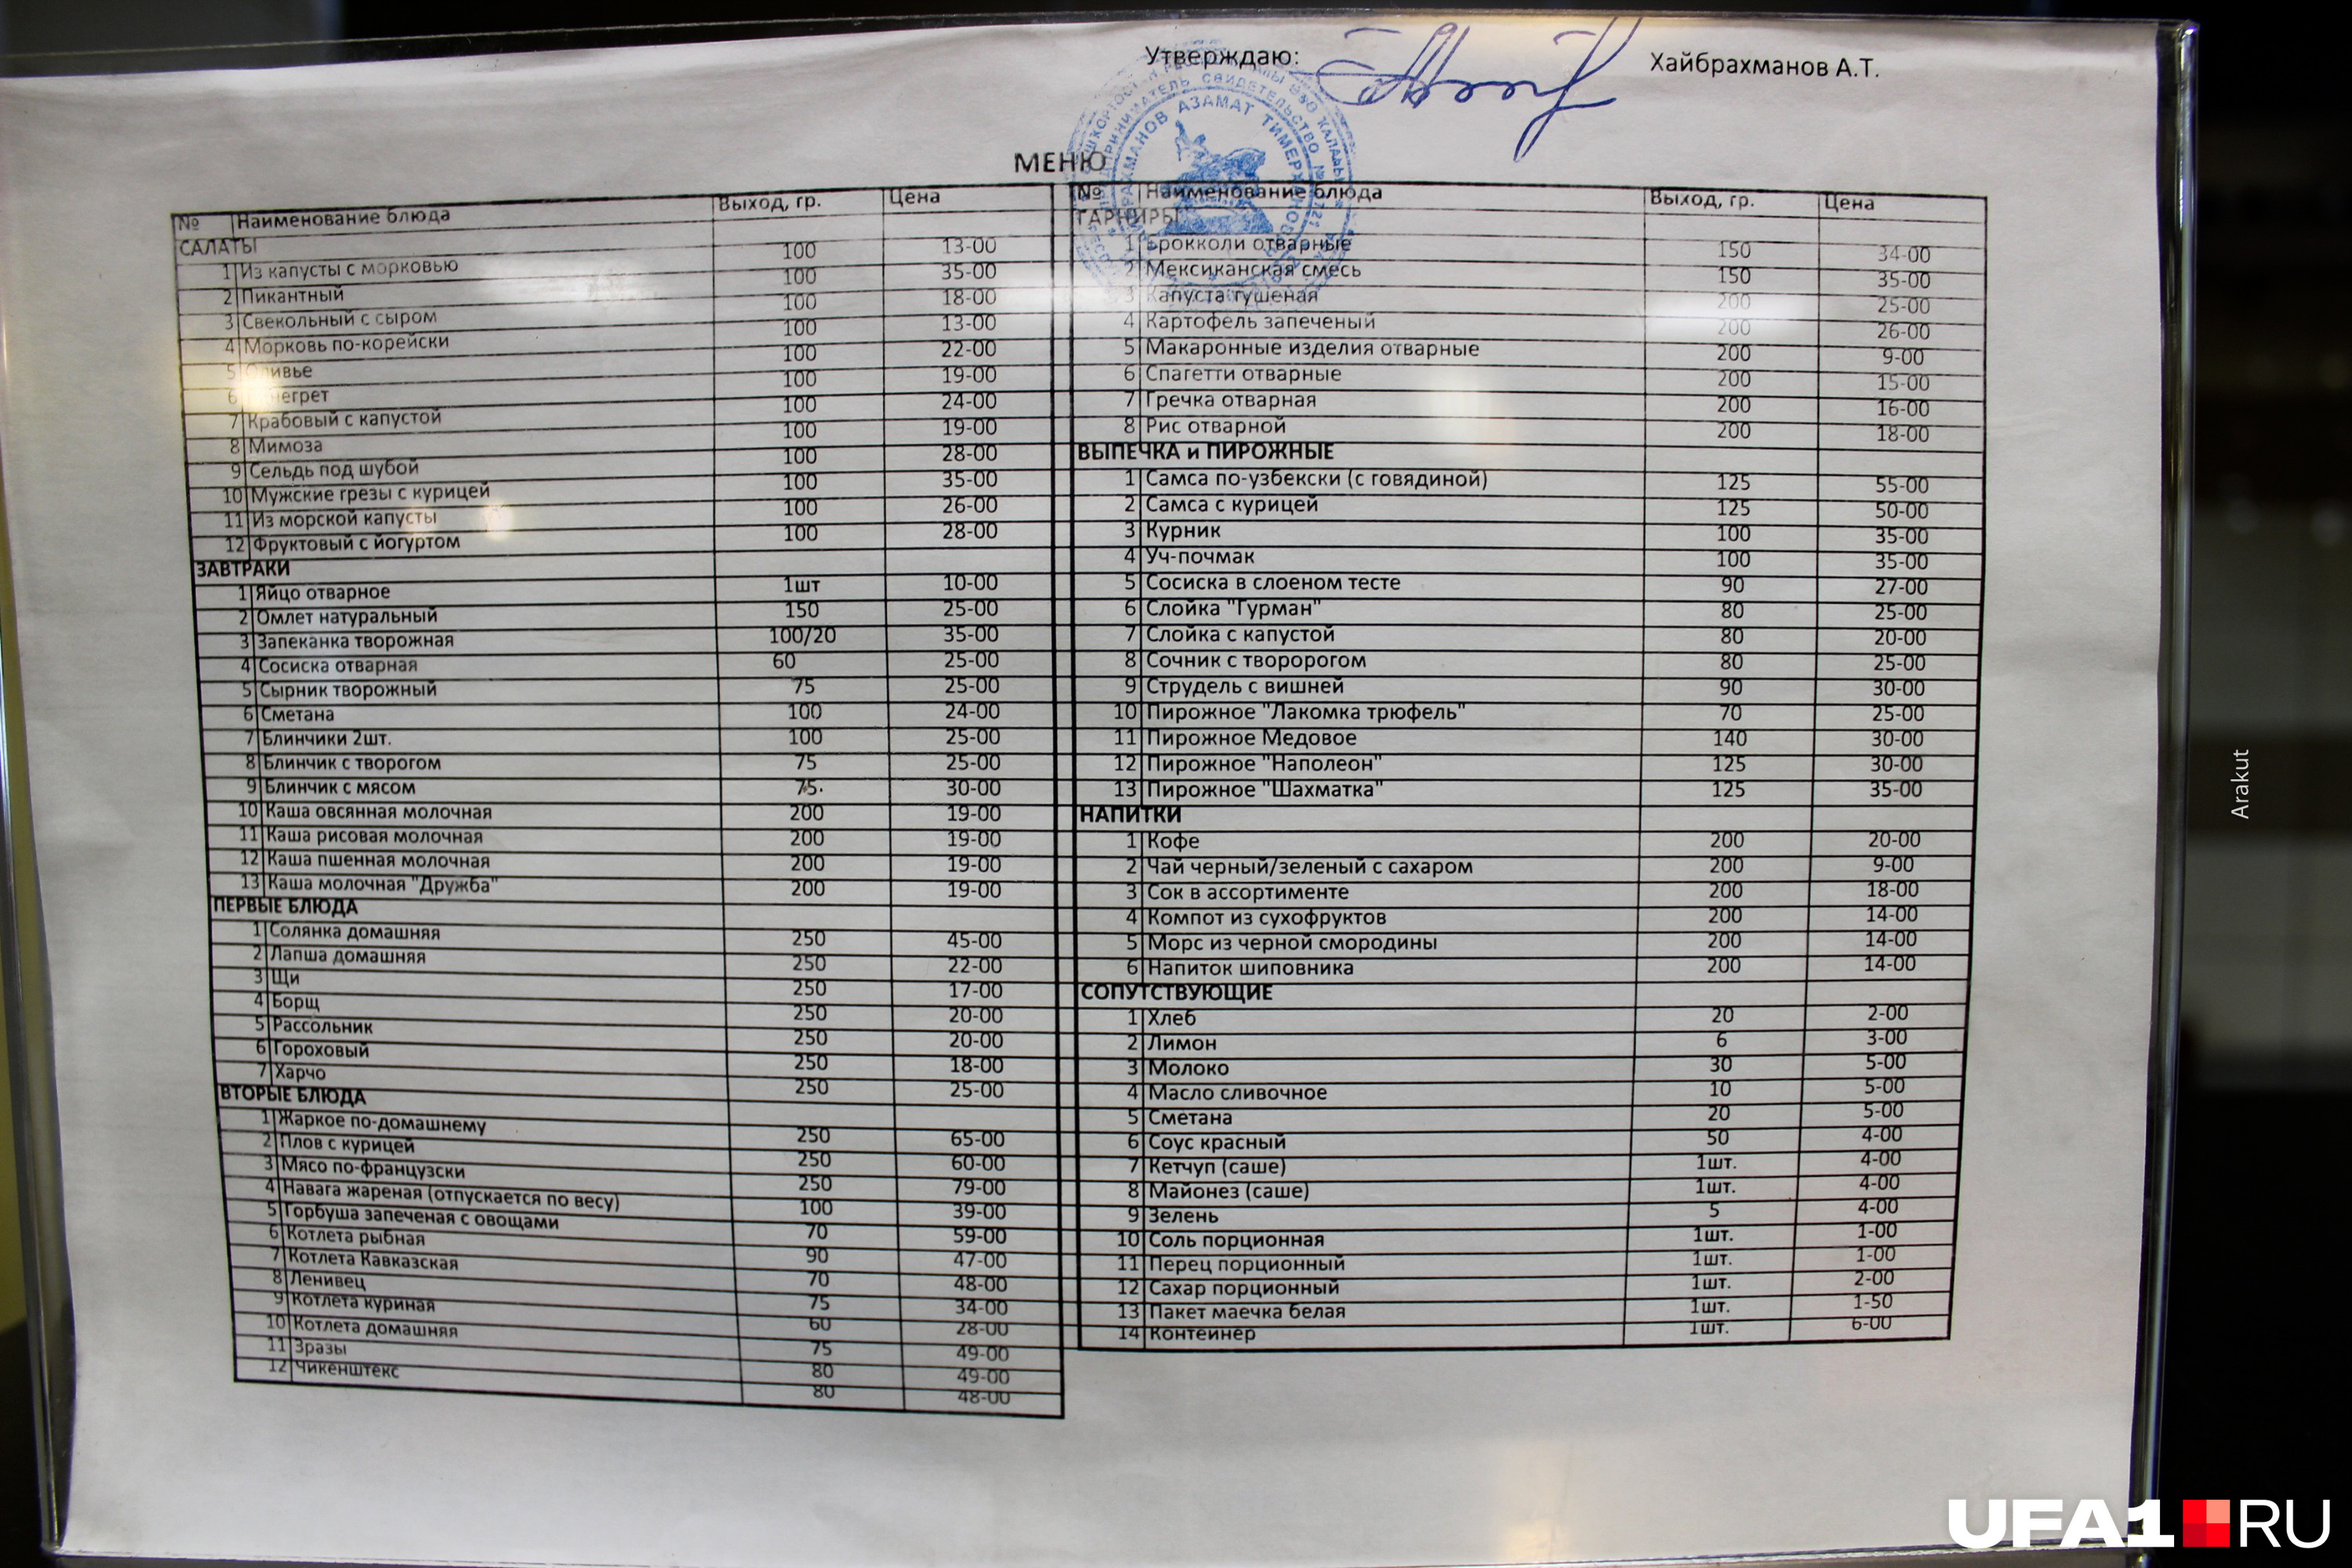 Утверждаю: Хайбрахманов А.Т.
МЕНЮ
№ Наименование блюда Выход, гр. Цена
САЛАТЫ
1 Из капусты с морковью 100 13-00
2 Пикантный 100 35-00
3 Свекольный с сыром 100 18-00
4 Морковь по-корейски 100 13-00
5 Оливье 100 22-00
6 100 19-00
7 Крабовый с капустой 100 24-00
8 Мимоза 100 19-00
9 Сельдь под шубой 100 28-00
10 Мужские грезы с курицей 100 35-00
11 Из морской капусты 100 26-00
12 Фруктовый с йогуртом 100 28-00
ЗАВТРАКИ
1 Яйцо отварное 1шт 10-00
2 Омлет натуральный 150 25-00
3 Запеканка творожная 100/20 35-00
4 Сосиска отварная 60 25-00
5 Сырник творожный 75 25-00
6 Сметана 100 24-00
7 Блинчики 2шт. 100 25-00
8 Блинчик с творогом 75 25-00
9 Блинчик с мясом 75. 30-00
10 Каша овсянная молочная 200 19-00
11 Каша рисовая молочная 200 19-00
12 Каша пшенная молочная 200 19-00
13 Каша молочная "Дружба" 200 19-00
ПЕРВЫЕ БЛЮДА
1 Солянка домашняя 250 45-00
2 Лапша домашняя 250 22-00
3 Щи 250 17-00
4 Борщ 250 20-00
5 Рассольник 250 20-00
6 Гороховый 250 18-00
7 Харчо 250 25-00
ВТОРЫЕ БЛЮДА
1 Жаркое по-домашнему 250 65-00
2 Плов с курицей 250 60-00
3 Мясо по-французски 250 79-00
4 Навага жареная (отпускается по весу) 100 39-00
5 Горбуша запеченая с овощами 70 59-00
6 Котлета рыбная 90 47-00
7 Котлета Кавказская 70 48-00
8 Ленивец 75 34-00
9 Котлета куриная 60 28-00
10 Котлета домашняя 75 49-00
11 Зразы 80 49-00
12 Чикенштекс 80 48-00
№ Наименование блюда Выход, гр. Цена
ГАРНИРЫ
1 Брокколи отварные 150 34-00
2 Мексиканская смесь 150 35-00
3 Капуста тушеная 200 25-00
4 Картофель запеченый 200 26-00
5 Макаронные изделия отварные 200 9-00
6 Спагетти отварные 200 15-00
7 Гречка отварная 200 16-00
8 Рис отварной 200 18-00
ВЫПЕЧКА и ПИРОЖНЫЕ
1 Самса по-узбекски (с говядиной) 125 55-00
2 Самса с курицей 125 50-00
3 Курник 100 35-00
4 Уч-почмак 100 35-00
5 Сосиска в слоеном тесте 90 27-00
6 Слойка "Гурман" 80 25-00
7 Слойка с капустой 80 20-00
8 Сочник с твоpорогом 80 25-00
9 Струдель с вишней 90 30-00
10 Пирожное "Лакомка трюфель" 70 25-00
11 Пирожное Медовое 140 30-00
12 Пирожное "Наполеон" 125 30-00
13 Пирожное "Шахматка" 125 35-00
НАПИТКИ
1 Кофе 200 20-00
2 Чай черный/зеленый с сахаром 200 9-00
3 Сок в ассортименте 200 18-00
4 Компот из сухофруктов 200 14-00
5 Морс из черной смородины 200 14-00
6 Напиток шиповника 200 14-00
СОПУТСТВУЮЩИЕ
1 Хлеб 20 2-00
2 Лимон 6 3-00
3 Молоко 30 5-00
4 Масло сливочное 10 5-00
5 Сметана 20 5-00
6 Соус красный 50 4-00
7 Кетчуп (саше) 1шт. 4-00
8 Майонез (саше) 1шт. 4-00
9 Зелень 5 4-00
10 Соль порционная 1шт. 1-00
11 Перец порционный 1шт. 1-00
12 Сахар порционный 1шт. 2-00
13 Пакет маечка белая 1шт. 1-50
14 Контейнер 1шт. 6-00
Arakut
UFA1 RU